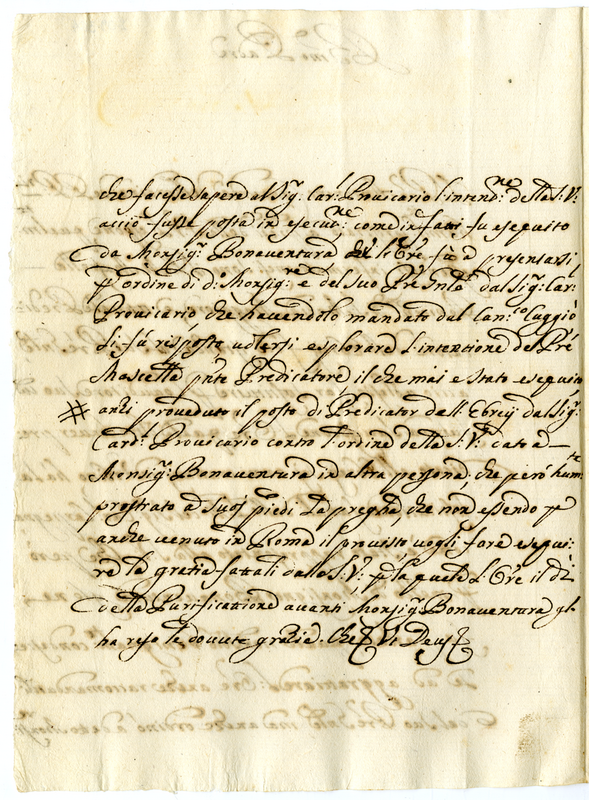 che facesse sapere al Sig.r Car.l Provicario l'intend.ne della S. V.
acciò fusse posta in esecut.ne come in fatti fu eseguito
da Monsig.r Bonaventura, e l'Ore fù à presentarsi
p ordine di d.o Monsig.re e del suo Pre Inte dal Sig.r Car.
Provicario, che havendolo mandato dal Can.co Cuggiò
li fù risposto volersi esplorare l'intentione del Pre
Mascella pnte Predicatore il che mai e stato eseguito
# anzi proveduto il posto di Predicator dell' Ebrej dal Sig.r
Card.l Provicario contro l'ordine della S. V. dato a
Monsig.r Bonaventura in altra persona, che però hum.te
prostrato a suoj piedi la prega, che non essendo p
anche venuto in Roma il provisto vogli fare esegui:
re la gratia fattali dalla S. V. p la quale l'Ore il dì
della Purificatione avanti Monsig.r Bonaventura gli
ha reso le dovute gratie. Che Ut Deus